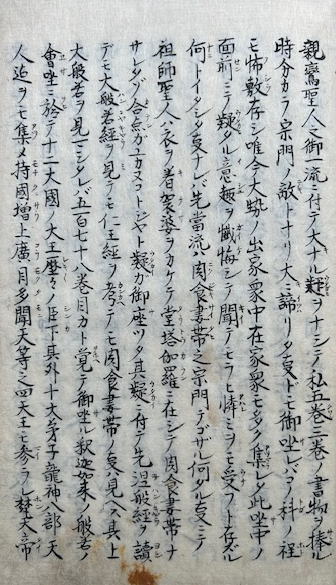 親鸞聖人之御一流ニ付テ大ナル難ヲナシテ私五巻三巻ノ書物ヲ捧ル
時分カラ宗門ノ敵トナリ大ニ諦リタ㕝ドモ御坐レバコノ科ノ程
モ怖敷存シ唯今大勢ノ出家衆中在家衆モ多ク集レタ此坐中ノ
面前ニテ難タル意趣ヲ懺悔シテ聞テモラヒ憐ミヲモ受フト存ズル
何トイタシタ㕝ナレバ先當流ハ肉食妻帯之宗門テゴザル何タル㕝ニテ
祖師聖人ハ衣ヲ着袈婆ヲカケテ堂塔伽羅ニ在シテノ肉食妻帯ナ
サレタゾ合点ガユカヌコトジヤト疑ガ御座ツタ其疑ニ付テ先涅般經ヲ讀
テモ大般若經ヲ見テモ仁王經ヲ考テモ肉食妻帯ノ㕝ハ見ヘズ其上
大般若ヲ見マシタレバ五百七十八巻目カト覚テ御坐ル釈迦如来ノ般若ノ
會坐ニ於テ十六大國ノ大王麼々ノ臣下其外十大弟子龍神八部天
人迠ヲモ集メ持國増上廣目多聞天等之四天王モ参ラレ梵天帝